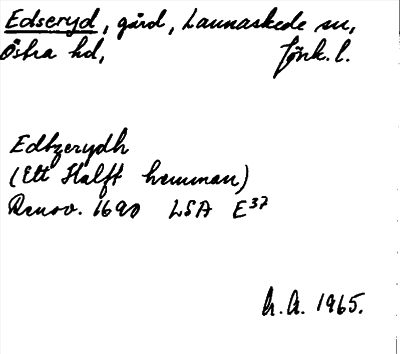 Edseryd, gård, Lannaskede sn,
Östra hd, Jönk. l.
Edtzerydh
(Ett Halft hemman)
Renov. 1690 LSA E37
h.A. 1965.